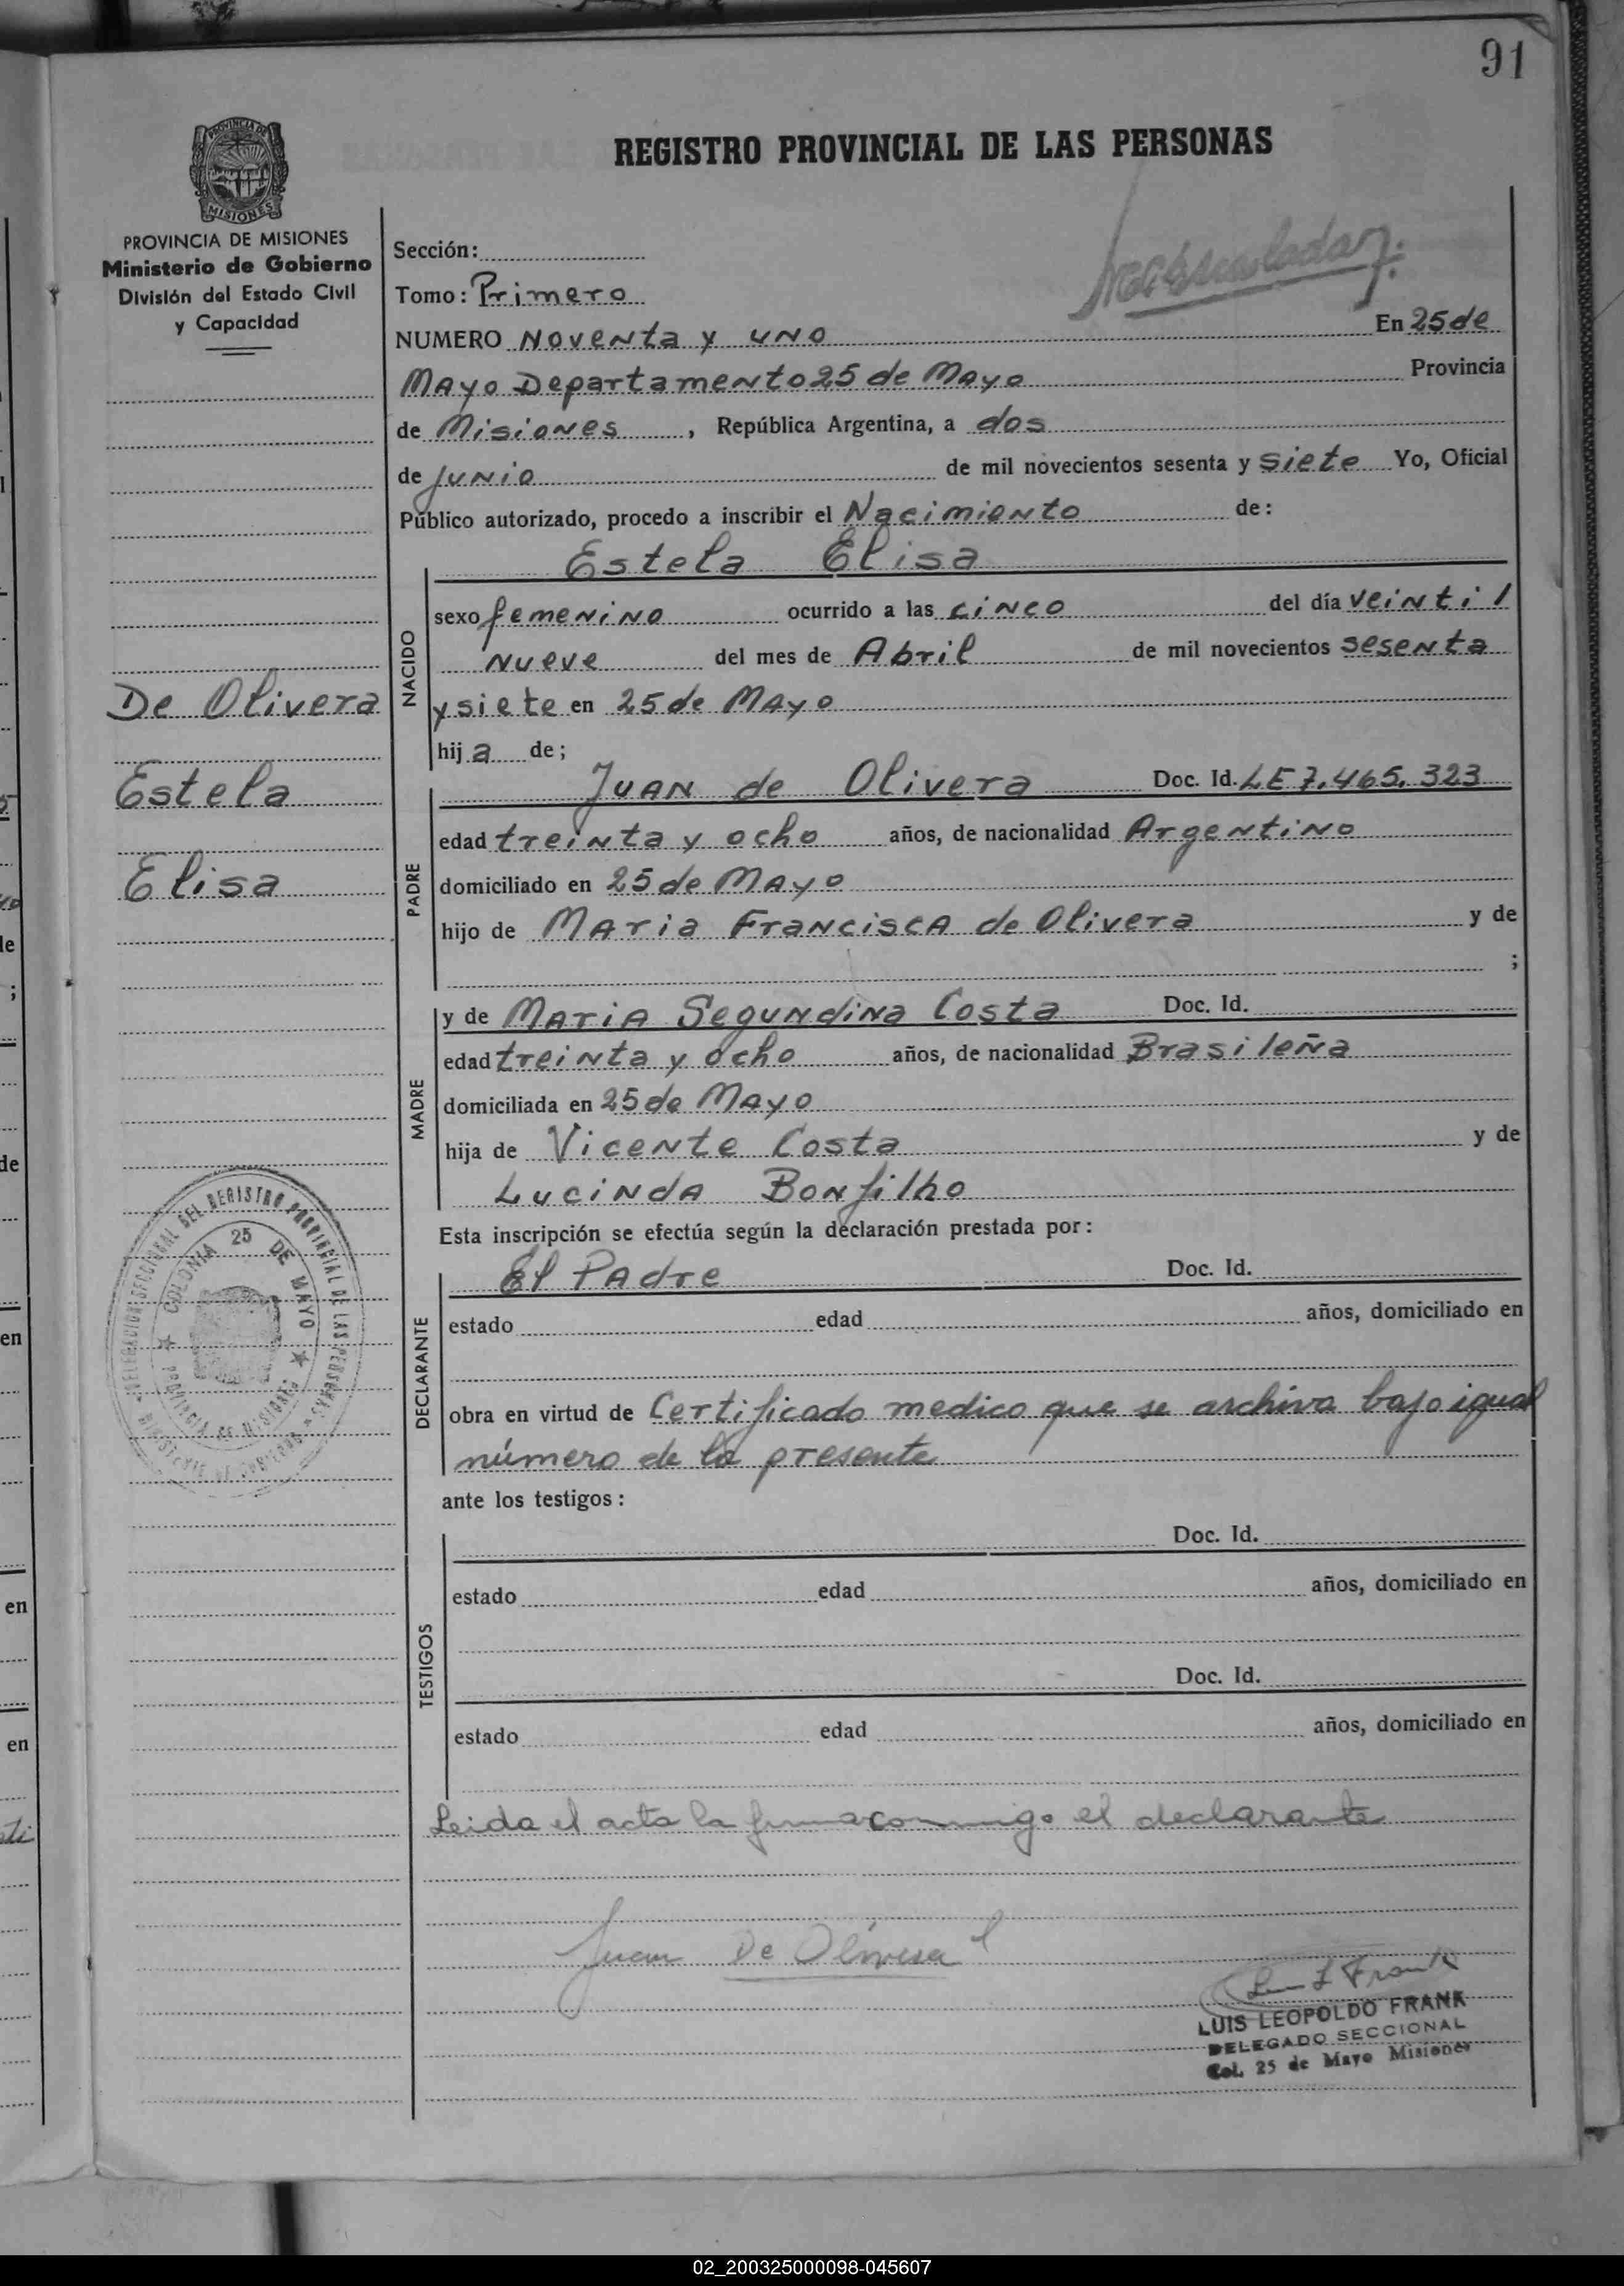 91
REGISTRO PROVINCIAL DE LAS PERSONAS
PROVINCIA DE MISIONES
MISIONES
PROVINCIA DE MISIONES
Ministerio de Gobierno
División del Estado Civil
y Capacidad
De Olivera
Estela
Elisa
Sección:
Tomo: Primero
NUMERO Noventa y uno En 25 de
Mayo Departamento 25 de Mayo Provincia
de Misiones, República Argentina, a dos
de Junio de mil novecientos sesenta y siete Yo, Oficial
Público autorizado, procedo a inscribir el Nacimiento de:
Estela Elisa
NACIDO
sexo femenino ocurrido a las cinco del día veinti
nueve del mes de Abril de mil novecientos sesenta
y siete en 25 de Mayo
hija de;
PADRE
Juan de Olivera Doc. Id. LE 7.465.323
edad treinta y ocho años, de nacionalidad Argentino
domiciliado en 25 de Mayo
hijo de Maria Francisca de Olivera y de
;
MADRE
y de Maria Segundina Costa Doc. Id.
edad treinta y ocho años, de nacionalidad Brasileña
domiciliada en 25 de Mayo
hija de Vicente Costa y de
Lucinda Bonfilho
Esta inscripción se efectúa según la declaración prestada por:
DECLARANTE
El Padre Doc. Id.
estado edad años, domiciliado en
obra en virtud de Certificado medico que se archiva bajo igual
número de la presente
ante los testigos:
TESTIGOS
Doc. Id.
estado edad años, domiciliado en
Doc. Id.
estado edad años, domiciliado en
Leida el acta la firma conmigo el declarante
Juan De Olivera
L Frank
LUIS LEOPOLDO FRANK
DELEGADO SECCIONAL
Col. 25 de Mayo Misiones
DELEGACION SECCIONAL DEL REGISTRO PROVINCIAL DE LAS PERSONAS
MINISTERIO DE GOBIERNO
COLONIA 25 DE MAYO
PROVINCIA DE MISIONES
de
;
de
en
en
en
02_200325000098-045607